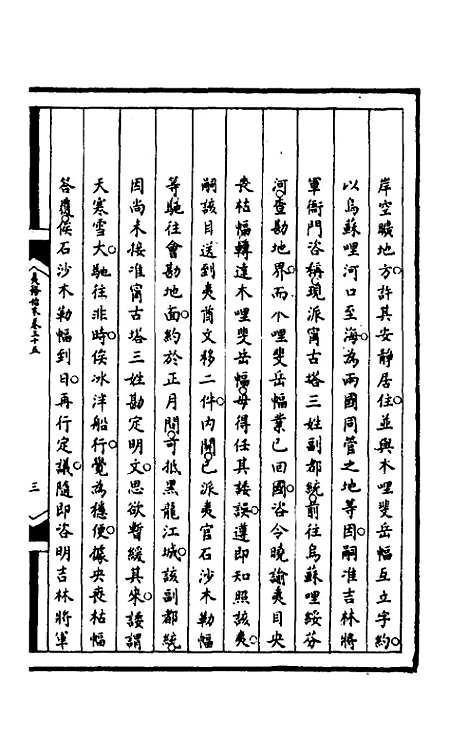 岸空曠地方許其安靜居住並與木哩斐岳幅互立字約
以烏蘇哩河口至海為兩國同管之地等因嗣准吉林將
軍衙門咨稱現派甯古塔三姓副都統前往烏蘇哩綏芬
河查勘地界而木哩斐岳幅業已回國咨令曉諭夷目央
喪枯幅轉達木哩斐岳幅毋得任其諉誤遵即知照該夷
嗣該目送到夷酋文移二件內開已派夷官石沙木勒幅
等馳往會勘地面約於正月間可抵黑龍江城該副都統
因尚未接准甯古塔三姓勘定明文思欲暫緩其來諉謂
天寒雪大馳往非時俟冰泮船行覺為穩便據央喪枯幅
答覆俟石沙木勒幅到日再行定議隨即咨明吉林將軍
夷務始末卷三十五
三